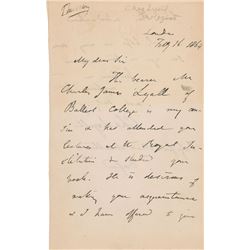 London
16 1864
My dear Sir
The bearer Mr
Charles James Lyall of
Balliol College is my
& has attended your
lectures at the Royal
studied your
work. He is desirous of
making your acquaintance
& I have offered